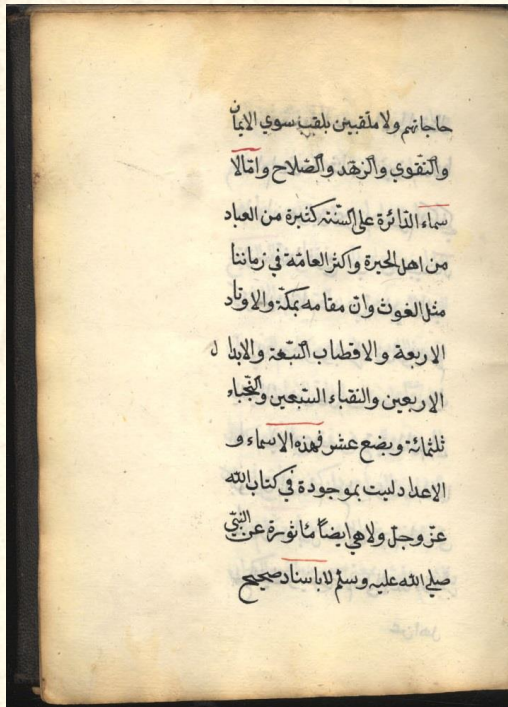 حاجاتهم ولا ملقبين بلقب سوي الايمان
والتقوي والزهد والصلاح وامّا الا
سماء الدائرة علي السنة كثيرة من العباد
من اهل الحيرة واكثر العامّة في زماننا
مثل الغوث وان مقامه بمكّة والاوتاد
الاربعة والاقطاب السبعة والابدا ل
الاربعين والنقباء السّبعين والنّجباء
ثلثمائة وبضع عشر فهذه الاسماء و
الاعداد ليت بموجودة في كتاب الله
عزّ وجلّ ولا هي ايضاً مأثورة عن النبيّ
صلي الله عليه وسلّم لا باسناد صحيح